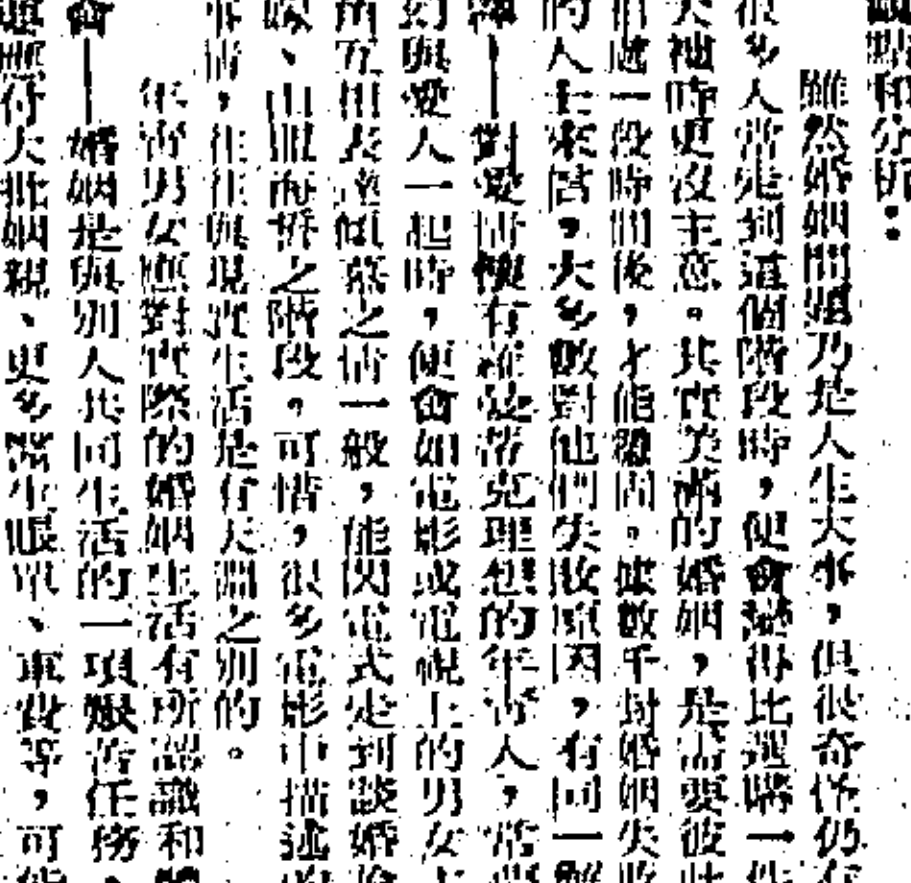 觀點和分析：
雖然婚姻問題乃是人生大事，但很奇怪仍有
很多人當走到這個階段時，便會變得比選購一件
大褸時更沒主意。其實美滿的婚姻，是需要彼此
相處一段時間後，才能鞏固。據數千對婚姻失敗
的人士來信，大多數對他們失敗原因，有同一解
——對愛情懷有羅曼蒂克理想的年青人，常
幻與愛人一起時，便會如電影或電視上的男女主
所互相表達傾慕之情一般，能閃電式走到談婚
嫁、山盟海誓之階段。可惜，很多電影中描述的
事情，往往與現實生活是有天淵之別的。
年青男女應對實際的婚姻生活有所認識和體
會——婚姻是與別人共同生活的一項艱苦任務、
應付大批姻親、更多醫生賬單、車費等，可能